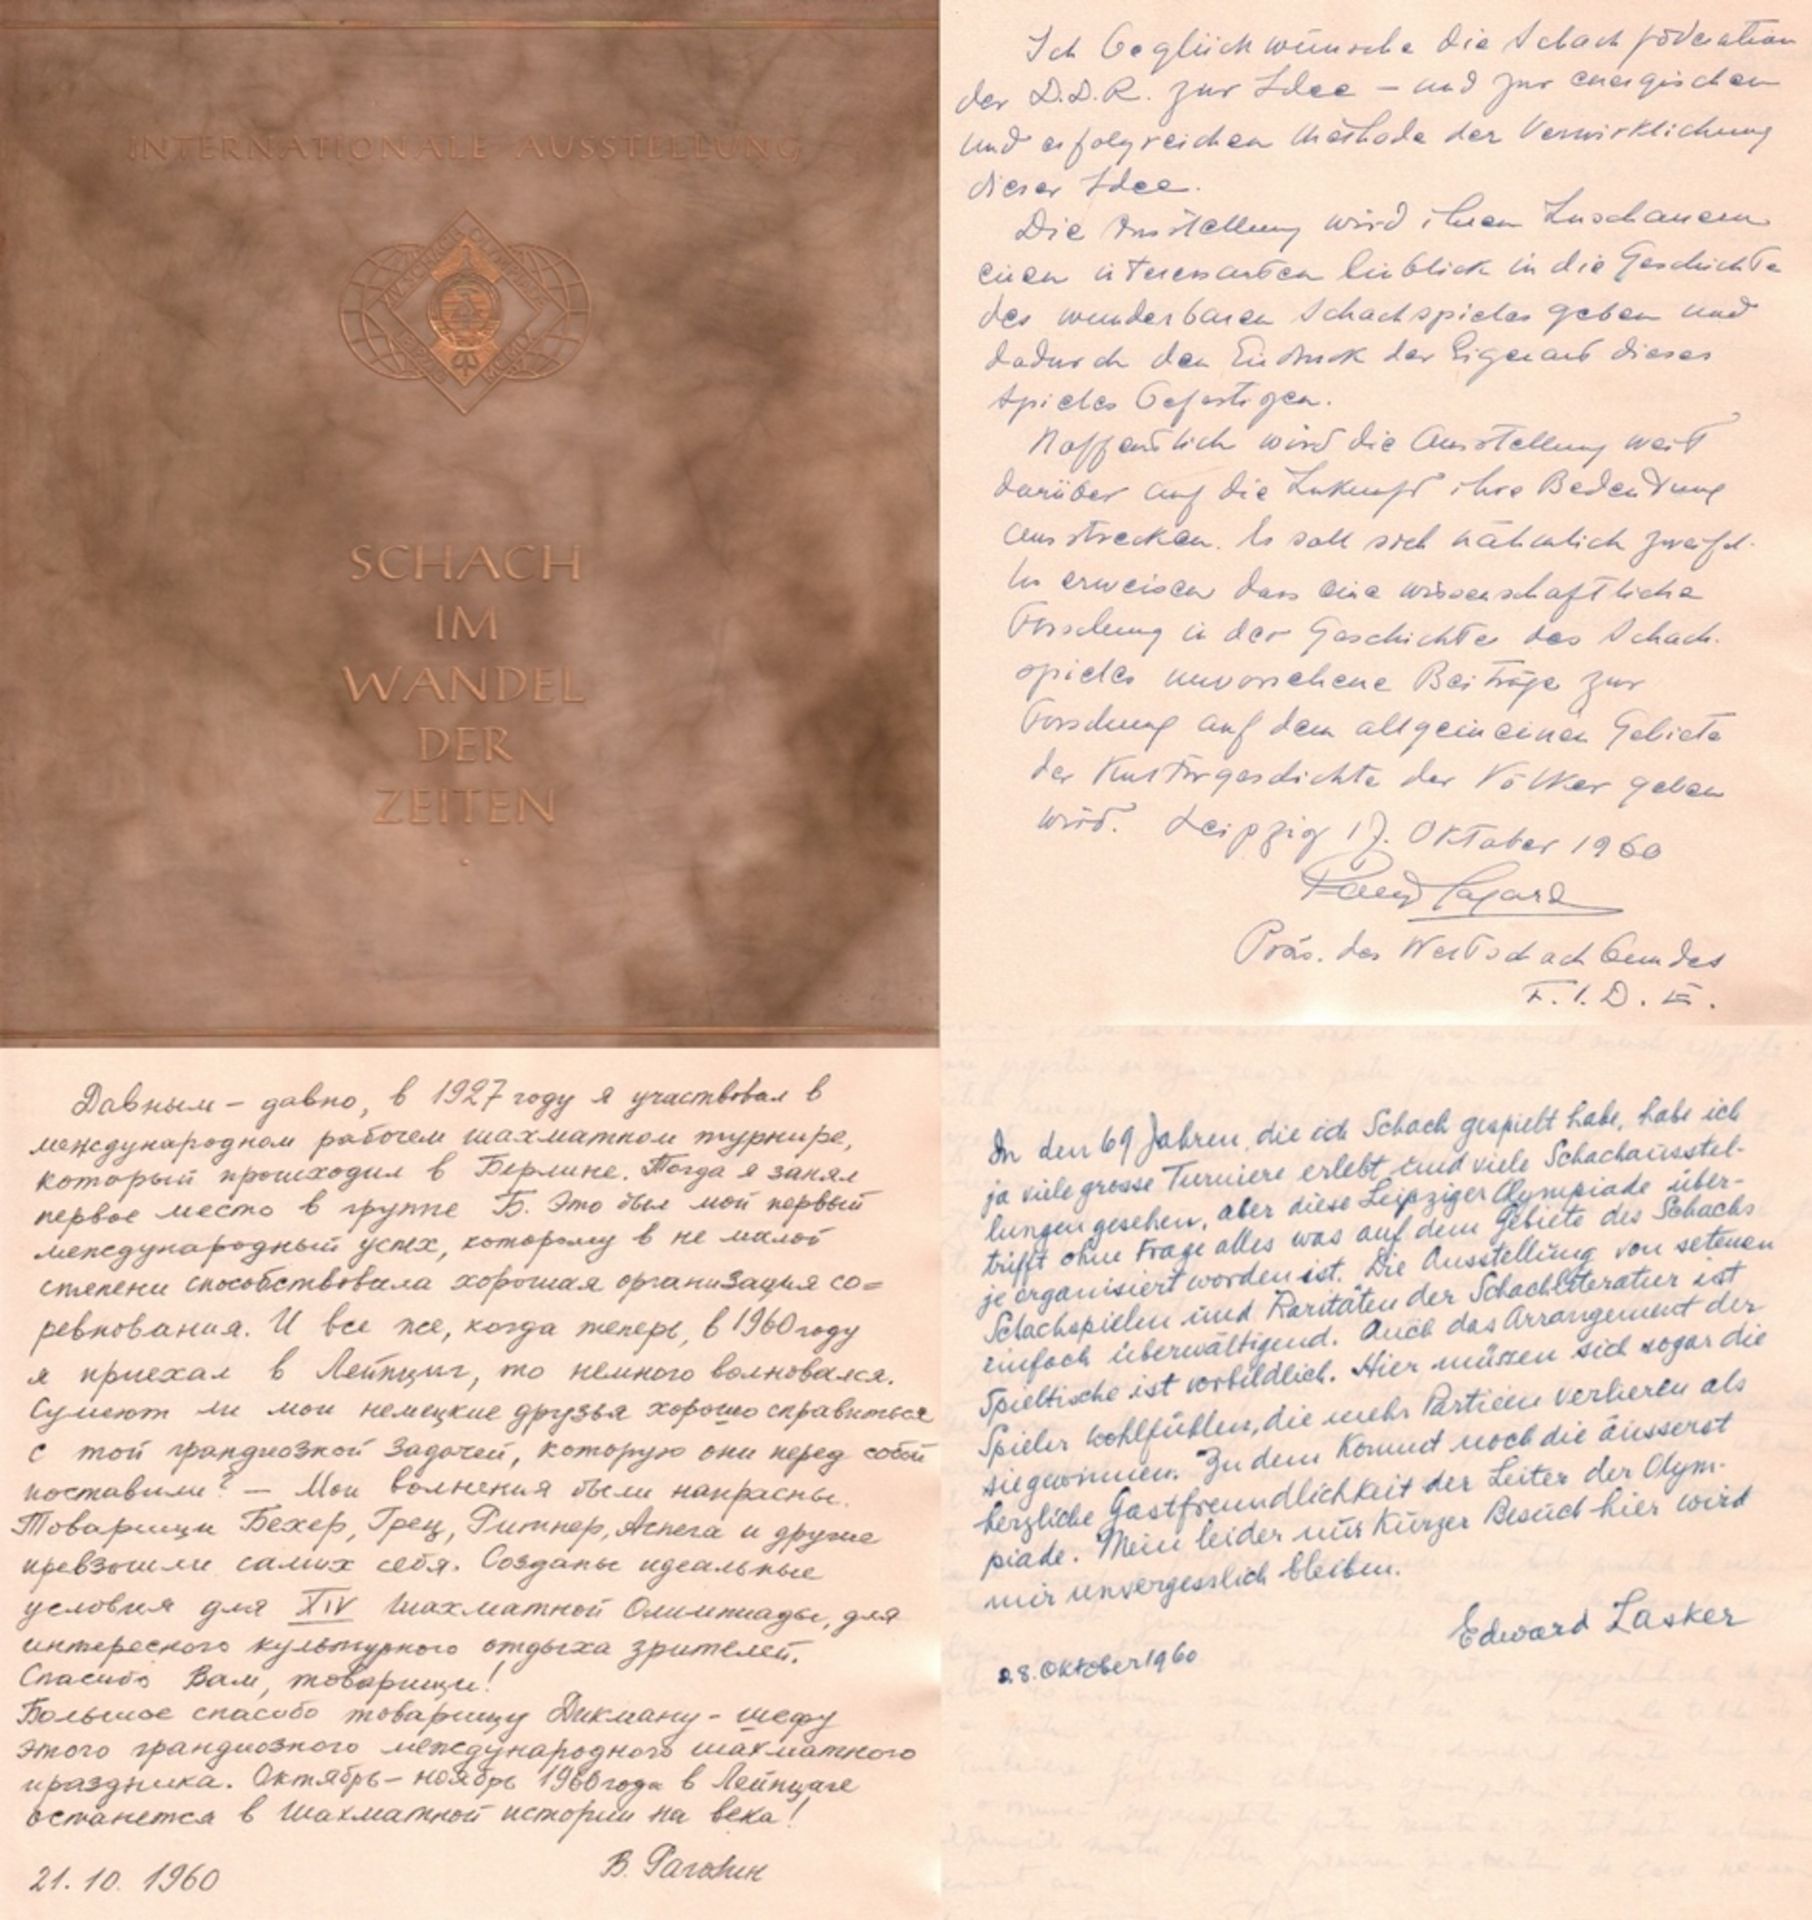 INTERNATIONALE AUSSTELLUNG
SCHACH
IM
WANDEL
DER
ZEITEN
Ich beglückwünsche die Schachföderation
der D.D.R. zur Idee – und zur energischen
und erfolgreichen Methode der Verwirklichung
dieser Idee.
Die Ausstellung wird ihren Zuschauern
einen interessanten Einblick in die Geschichte
des wunderbaren Schachspieles geben und
dadurch den Eindruck der Eigenart dieses
Spieles befestigen.
Hoffentlich wird die Ausstellung weit
darüber auf die Zukunft ihre Bedeutung
ausstrecken. Es soll sich nähmlich zweifel-
los erweisen dass eine wissenschaftliche
Forschung in der Geschichte des Schach-
spieles unvorsehene Beiträge zur
Forschung auf dem allgemeinen Gebiete
der Kulturgeschichte der Völker geben
wird. Leipzig 17. Oktober 1960
Präs. des Weltschachbundes
F.I.D.E.
Давным – давно, в 1927 году я участвовал в
международном рабочем шахматном турнире,
который происходил в Берлине. Тогда я занял
первое место в группе Б. Это был мой первый
международный успех, которому в не малой
степени способствовала хорошая организация со=
ревнования. И все же, когда теперь, в 1960 году
я приехал в Лейпциг, то немного волновался.
Сумеют ли мои немецкие друзья хорошо справиться
с той грандиозной задачей, которую они перед собой
поставили? – Мои волнения были напрасны.
Товарищи Бехер, Грец, Ритнер, Аспега и другие
превзошли самих себя. Созданы идеальные
условия для XIV Шахматной Олимпиады, для
интересного культурного отдыха зрителей.
Спасибо Вам, товарищи!
Большое спасибо товарищу Дикману – шефу
этого грандиозного международного шахматного
праздника. Октябрь – ноябрь 1960 года в Лейпциге
останется в шахматной истории на века!
В. Рагозин
21. 10. 1960
In den 69 Jahren, die ich Schach gespielt habe, habe ich
ja viele grosse Turniere erlebt und viele Schachausstel-
lungen gesehen, aber diese Leipziger Olympiade über-
trifft ohne Frage alles was auf dem Gebiete des Schachs
je organisiert worden ist. Die Ausstellung von seltenen
Schachspielen und Raritäten der Schachliteratur ist
einfach überwältigend. Auch das Arrangement der
Spieltische ist vorbildlich. Hier müssen sich sogar die
Spieler wohlfühlen, die mehr Partien verlieren als
sie gewinnen. Zu dem kommt noch die äusserst
herzliche Gastfreundlichkeit der Leiter der Olym-
piade. Mein leider nur kurzer Besuch hier wird
mir unvergesslich bleiben.
Edward Lasker
28. Oktober 1960